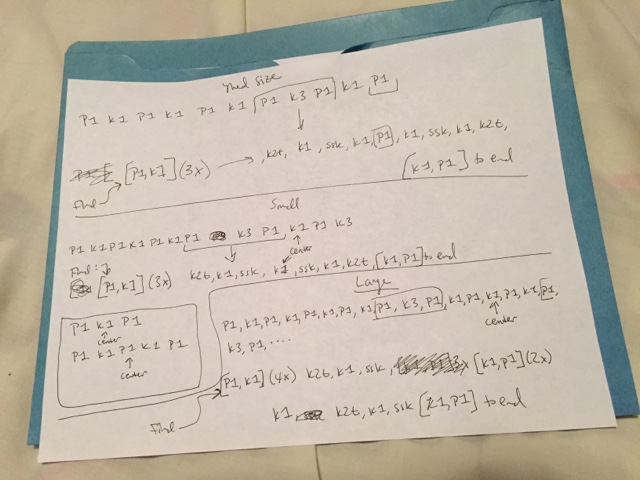 Med Size
P1 K1 P1 K1 P1 K1 P1 K3 P1 K1 P1
[P1, K1] (3x) → , K2t, K1, ssk, K1, P1, K1, ssk, K1, K2t,
Find
[K1, P1] to end
Small
P1 K1 P1 K1 P1 K1 P1 K3 P1 K1 P1 K3
center
Find:
[P1, K1] (3x) K2t, K1, ssk, K1, ssk, K1, K2t, [K1, P1] to end
Large
P1 K1 P1
center
P1 K1 P1 K1 P1
center
P1, K1, P1, K1, P1, K1, P1, K1, P1, K3, P1, K1, P1, K1, P1, K1, P1,
center
K3, P1, ....
[P1, K1] (4x) K2t, K1, ssk, [K1, P1] (2x)
Find
K1, K2t, K1, ssk [K1, P1] to end